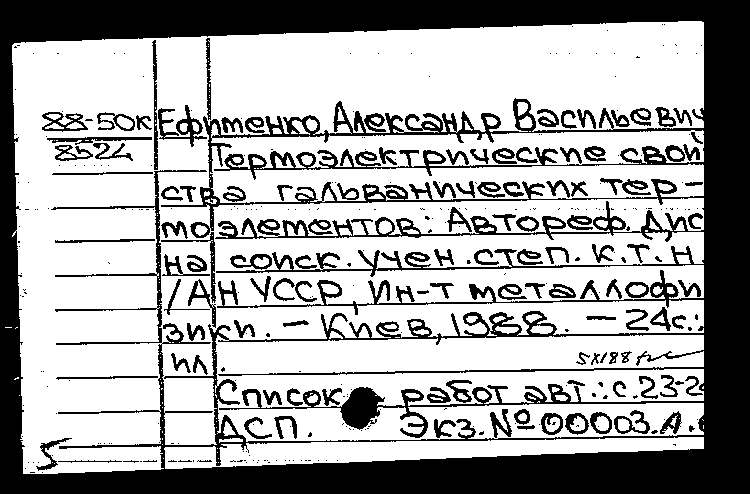 88-50к Ефименко, Александр Васильевич
8524 Термоэлектрические свой
ства гальванических тер-
моэлементов: Автореф. дис
на соиск. учен. степ. к.т.н.
/АН УССР, Ин-т металлофи
зики. - Киев, 1988. - 24с.:
ил.
5XI88
Список работ авт.: с.23-2
ДСП. Экз.№ 00003.А.
5